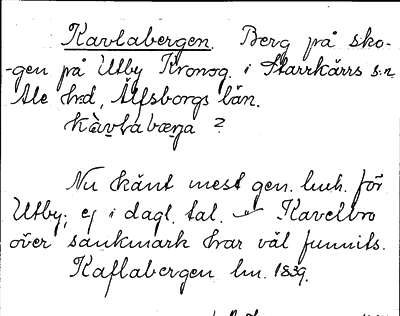 Kavlabergen. Berg på sko-
-gen på Utby Kronog. i Starrkärrs s:n
Ale h:d, Älfsborgs län.
kàvlabæṛja ?
Nu känt mest gen. luh. för
Utby; ej i dagl. tal. – Kavelbro
över sankmark har väl funnits.
Kaflabergen lm. 1839.